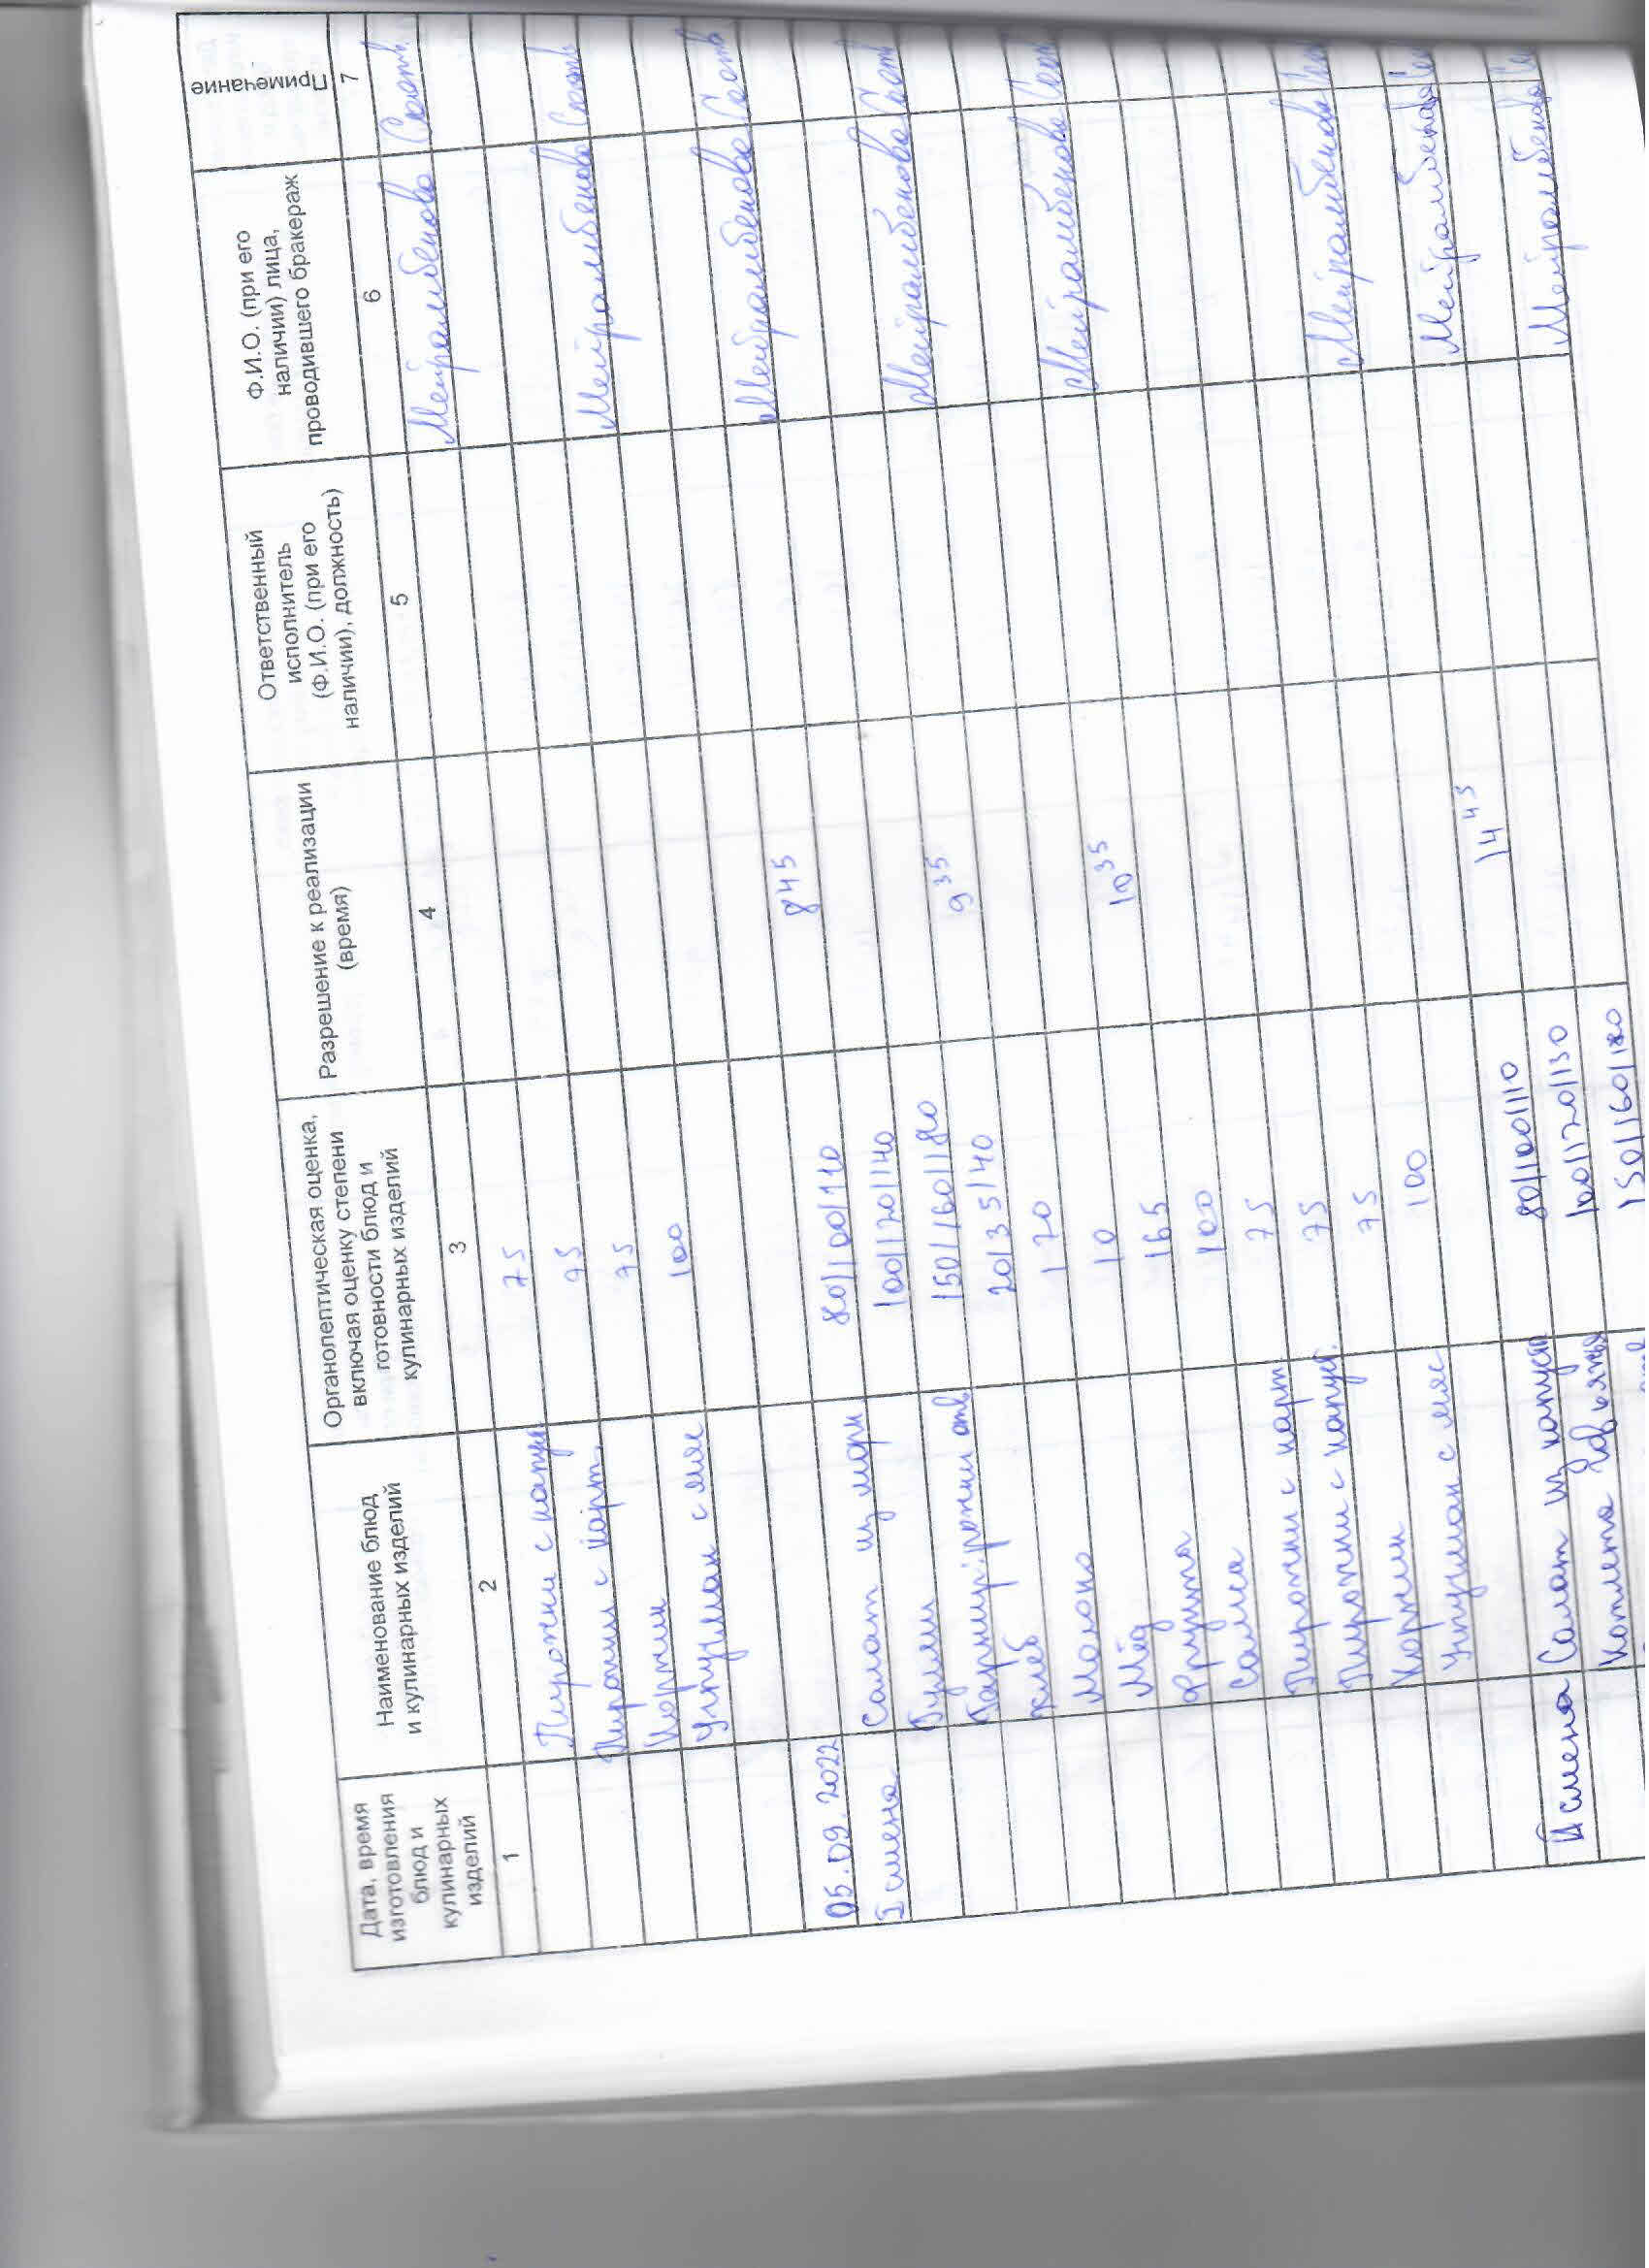 Дата, время
изготовления
блюд и
кулинарных
изделий
Наименование блюд
и кулинарных изделий
Органолептическая оценка,
включая оценку степени
готовности блюд и
кулинарных изделий
Разрешение к реализации
(время)
Ответственный
исполнитель
(Ф.И.О. (при его
наличии), должность)
Ф.И.О. (при его
наличии) лица,
проводившего бракераж
Примечание
1 2 3 4 5 6 7
Пирожки с капус 75 Мейрамбекова
Пирожки с карт. 95
75 Мейрамбекова
Улпушман с мяс 100
Мейрамбекова
05.09.2022 8 45
I смена Салат из морк 80/100/110 Мейрамбекова
Гуляш 100/120/140
Гарнир: рожки отв 150/160/180 9 35
хлеб 20/35/40 Мейрамбекова
Молоко 170
Мёд 10 10 35
Фрукты 165
Самса 100
Пирожки с карт 75 Мейрамбекова
Пирожки с капус. 75
75 Мейрамбекова
с мяс 100
14 45 Мейрамбекова
II смена Салат из капуст 80/100/110
Котлета говяжья 100/120/130
150/160/180